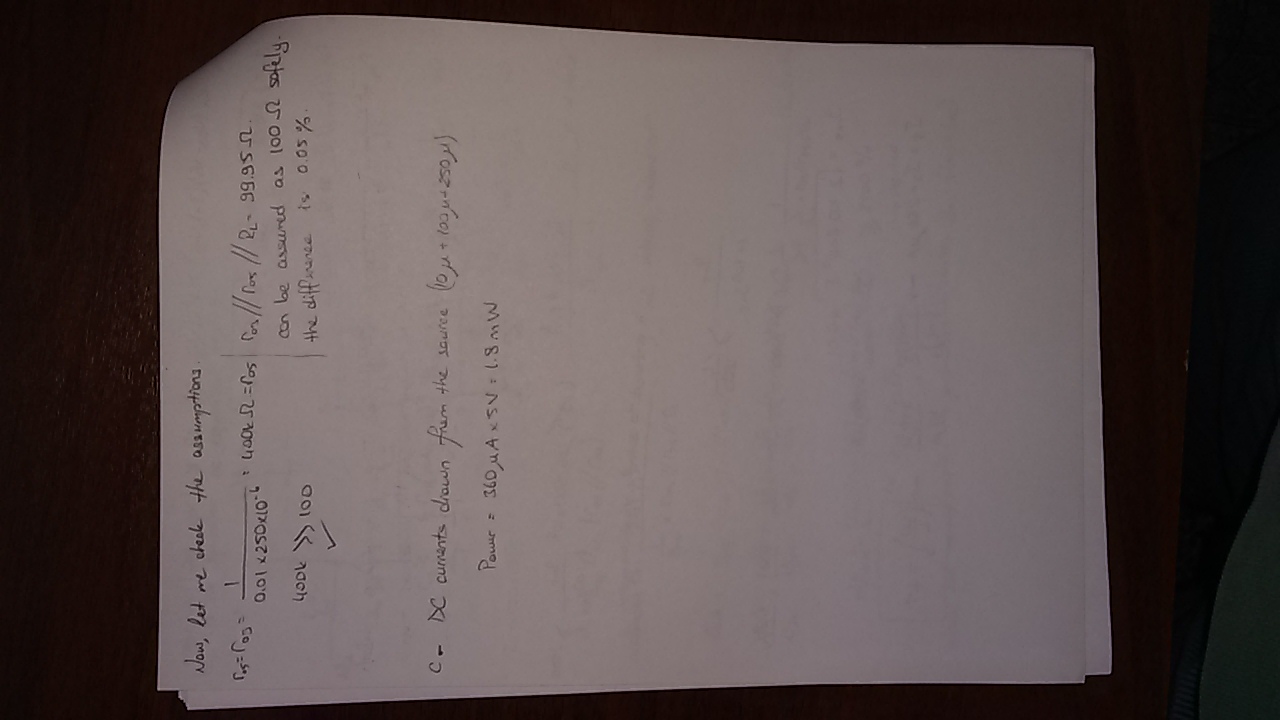 Now, let me check the assumptions.
r₀₅ = r₀₅ = 1 / 0.01 x 250x10⁻⁶ = 400k Ω = r₀₅
400k >> 100 ✓
r₀₅ // r₀₅ // RL = 99.95 Ω.
can be assumed as 100 Ω safely.
the difference is 0.05 %.
C - DC currents drawn from the source (10μ + 100μ + 250μ)
Power = 360μA x 5V = 1.8 mW